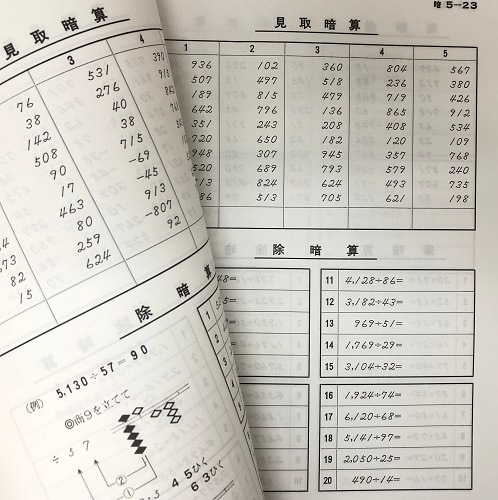 見取暗算
3 4
76 531
38 276
142 40
508 38
90 715
17 -69
463 -45
80 913
259 -807
624 92
82
15
除暗算
(例) 5,130÷57=90
◎商9を立てて
÷57
②
①
45ひく
63ひく
暗5-23
見取暗算
1 2 3 4 5
936 102 360 804 567
507 497 518 236 380
189 815 479 719 426
642 796 136 865 912
351 243 208 408 534
720 650 182 120 109
948 307 945 357 768
520 689 793 579 240
513 824 624 493 735
86 513 705 621 198
除暗算
11 4,128÷86=
12 3,182÷43=
13 969÷51=
14 1,769÷29=
15 3,104÷32=
16 1,924÷74=
17 6,120÷68=
18 5,141÷97=
19 2,050÷25=
20 490÷14=